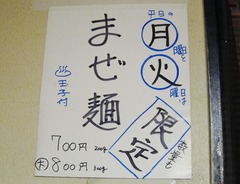 平日の
月曜と
火曜日は
限定
数量も
まぜ麺
♨玉子付
700円 200g
大 800円 300g